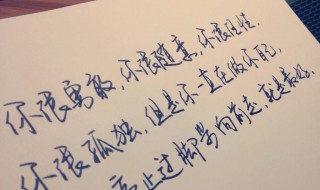 你很勇敢,你很随意,你很任性.
你很孤独,但是你一直在做你自己,
止过脚步向前走,就是最好.